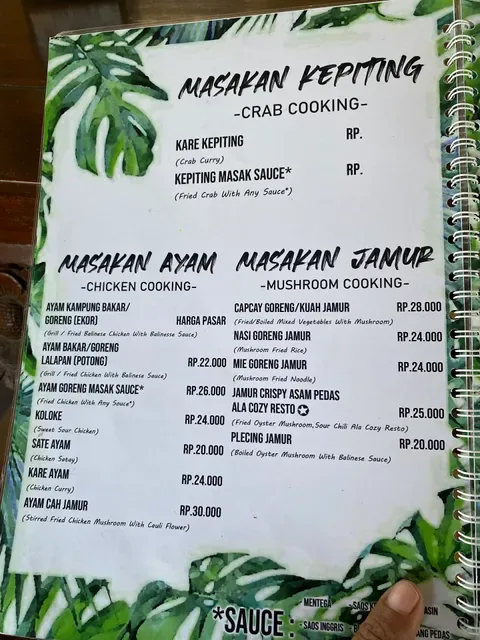 MASAKAN KEPITING
-CRAB COOKING-
KARE KEPITING RP.
(Crab Curry)
KEPITING MASAK SAUCE* RP.
(Fried Crab With Any Sauce*)
MASAKAN AYAM
-CHICKEN COOKING-
AYAM KAMPUNG BAKAR/
GORENG (EKOR) HARGA PASAR
(Grill / Fried Balinese Chicken With Balinesse Sauce)
AYAM BAKAR/GORENG
LALAPAN (POTONG) RP.22.000
(Grill / Fried Chicken With Balinese Sauce)
AYAM GORENG MASAK SAUCE* RP.26.000
(Fried Chicken With Any Sauce*)
KOLOKE RP.24.000
(Sweet Sour Chicken)
SATE AYAM RP.20.000
(Chicken Satay)
KARE AYAM RP.24.000
(Chicken Curry)
AYAM CAH JAMUR RP.30.000
(Stirred Fried Chicken Mushroom With Cauli Flower)
MASAKAN JAMUR
-MUSHROOM COOKING-
CAPCAY GORENG/KUAH JAMUR RP.28.000
(Fried/Boiled Mixed Vegetables With Mushroom)
NASI GORENG JAMUR RP.24.000
(Mushroom Fried Rice)
MIE GORENG JAMUR RP.24.000
(Mushroom Fried Noodle)
JAMUR CRISPY ASAM PEDAS
ALA COZY RESTO RP.25.000
(Fried Oyster Mushroom,Sour Chili Ala Cozy Resto)
PLECING JAMUR RP.20.000
(Boiled Oyster Mushroom With Balinese Sauce)
*SAUCE :
- MENTEGA - SAOS ASIN
- SAOS INGGRIS PEDAS